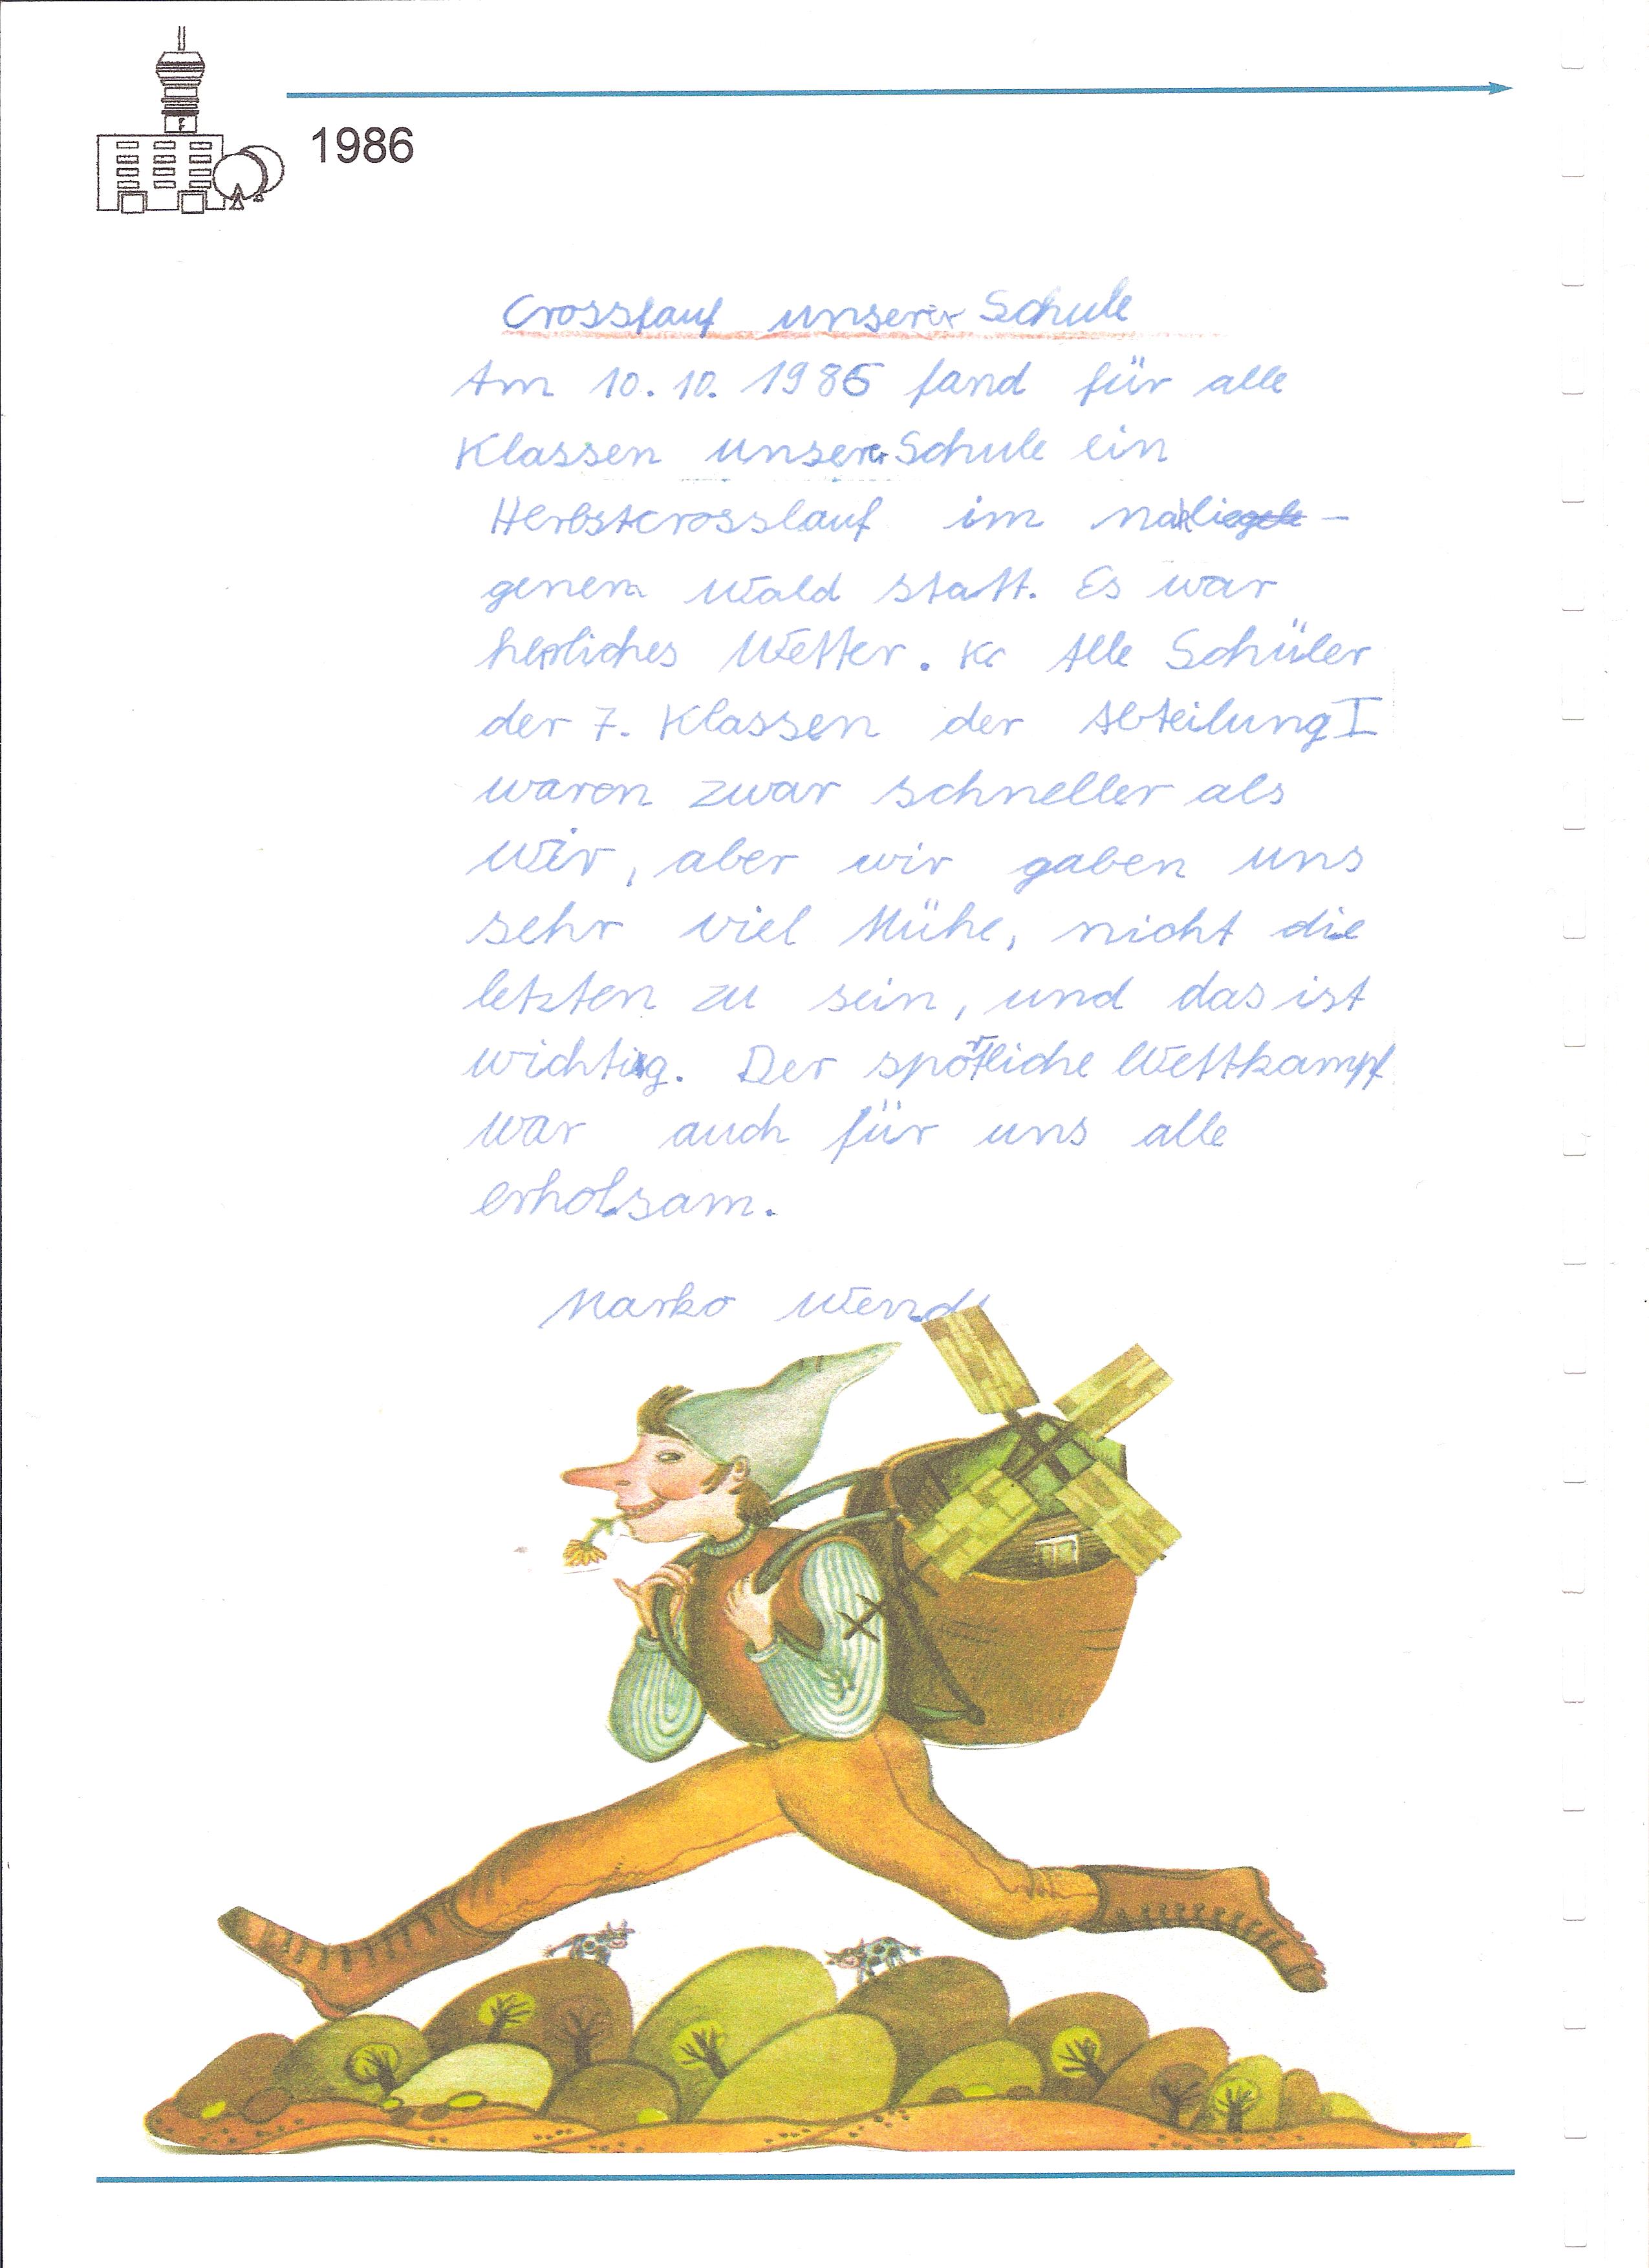 1986
Crosslauf unserer Schule
Am 10.10.1986 fand für alle
Klassen unserer Schule ein
Herbstcrosslauf im nahlie-
genen Wald statt. Es war
herrliches Wetter. Alle Schüler
der 7. Klassen der Abteilung I
waren zwar schneller als
wir, aber wir gaben uns
sehr viel Mühe, nicht die
letzten zu sein, und das ist
wichtig. Der sportliche Wettkampf
war auch für uns alle
erholsam.
Marko Wendt